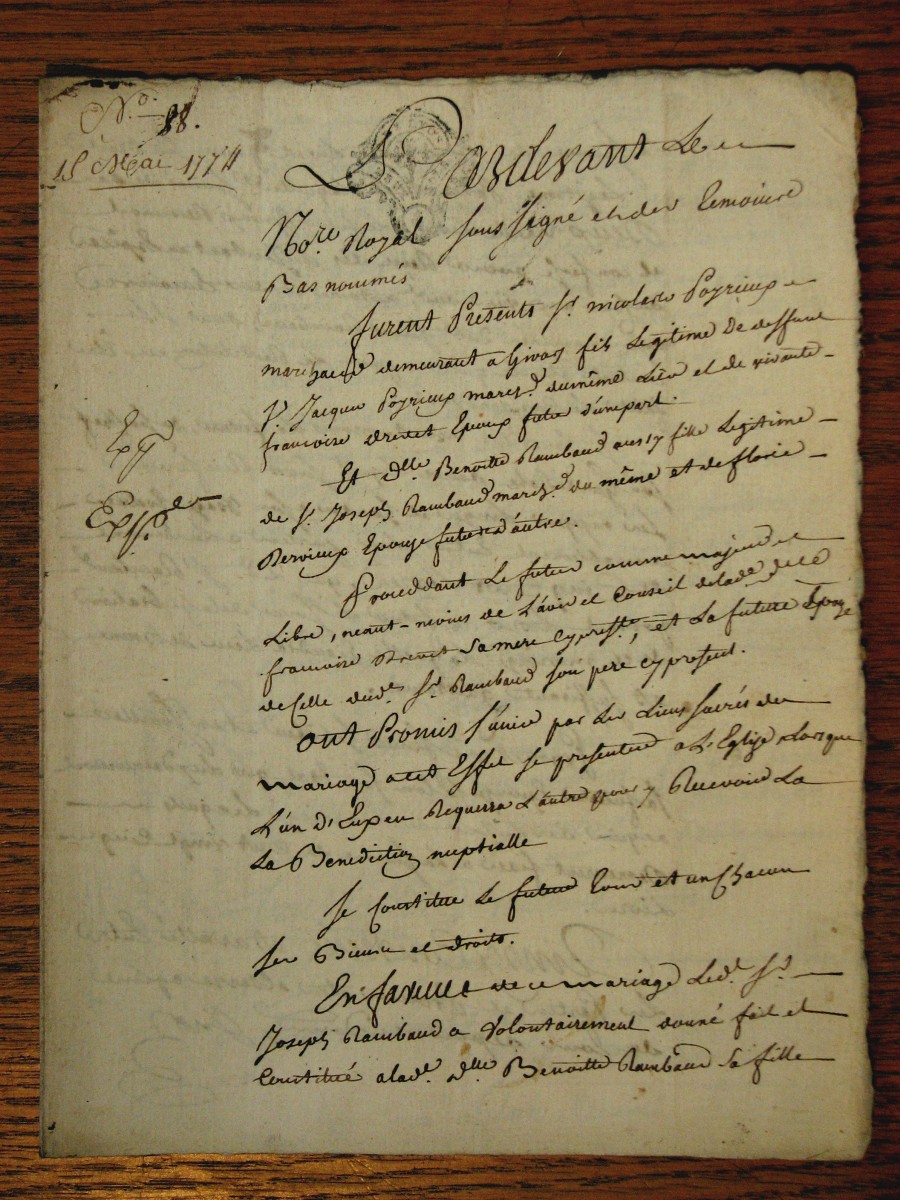 No. 88.
15 Mai 1774
Pardevant Le
Nore Royal soussigné et des temoins
Bas nommés
furent Presents Sr. nicolas Poyrieux
marchand demeurant a Givors fils Legitime de deffunt
Sr. Jacques Poyrieux march.d du même Lieu et de vivante
françoise drevet Epoux futur d'une part.
Et dlle. Benoitte Raimbaud aussy fille Legitime
de Sr. Joseph Raimbaud march.d du même et de florie
Dervieux Epouse future d'autre.
Proceddant Le futur comme majeur et
Libre, neant-moins de L'avis et Conseil de lade. dlle
françoise Drevet sa mere cy presste., et La future Epouse
de Celle dud. Sr. Raimbaud son pere cy present.
ont Promis s'unir par Les Liens sacrés du
mariage a cet Effet se presenter a L'Eglise Lorsque
L'un d'Eux en Requerra L'autre pour y Recevoir La
La Benediction nuptialle
Se Constitue Le futur tous et un Chacun
ses Biens et droits.
En faveur de ce mariage Led. Sr.
Joseph Raimbaud a volontairement donné fait et
Constitué a lade. dlle Benoitte Raimbaud sa fille
Expé